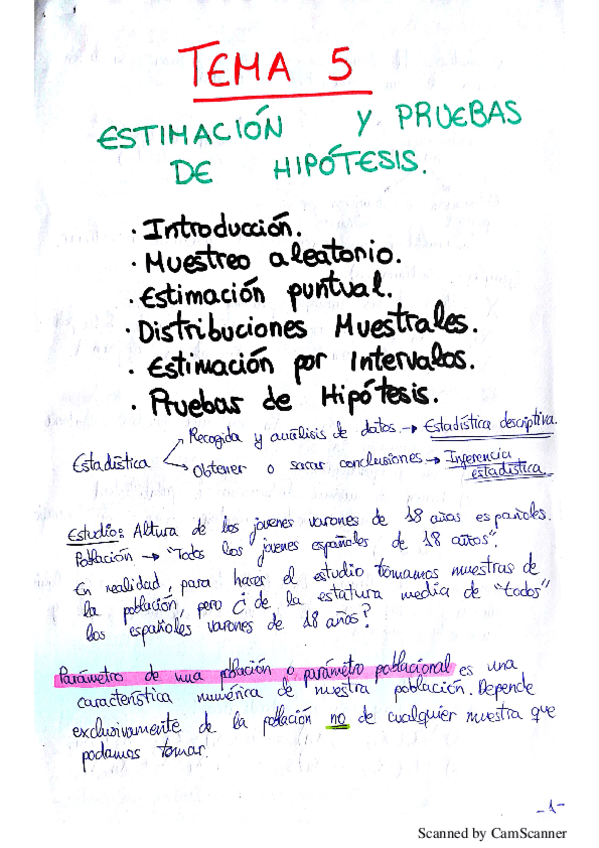 TEMA 5
ESTIMACIÓN Y PRUEBAS
DE HIPÓTESIS.
· Introducción.
· Muestreo aleatorio.
· Estimación puntual.
· Distribuciones Muestrales.
· Estimación por Intervalos.
· Pruebas de Hipótesis.
Recogida y análisis de datos → Estadística descriptiva.
Estadística
Obtener o sacar conclusiones → Inferencia
estadística
Estudio: Altura de los jovenes varones de 18 años españoles.
Población → "Todos los jovenes españoles de 18 años".
En realidad, para hacer el estudio tomamos muestras de
la población, pero ¿ de la estatura media de "todos"
los españoles varones de 18 años?
Parámetro de una población o parámetro poblacional es una
característica numérica de nuestra población. Depende
exclusivamente de la población no de cualquier muestra que
podamos tomar.
-1-
Scanned by CamScanner